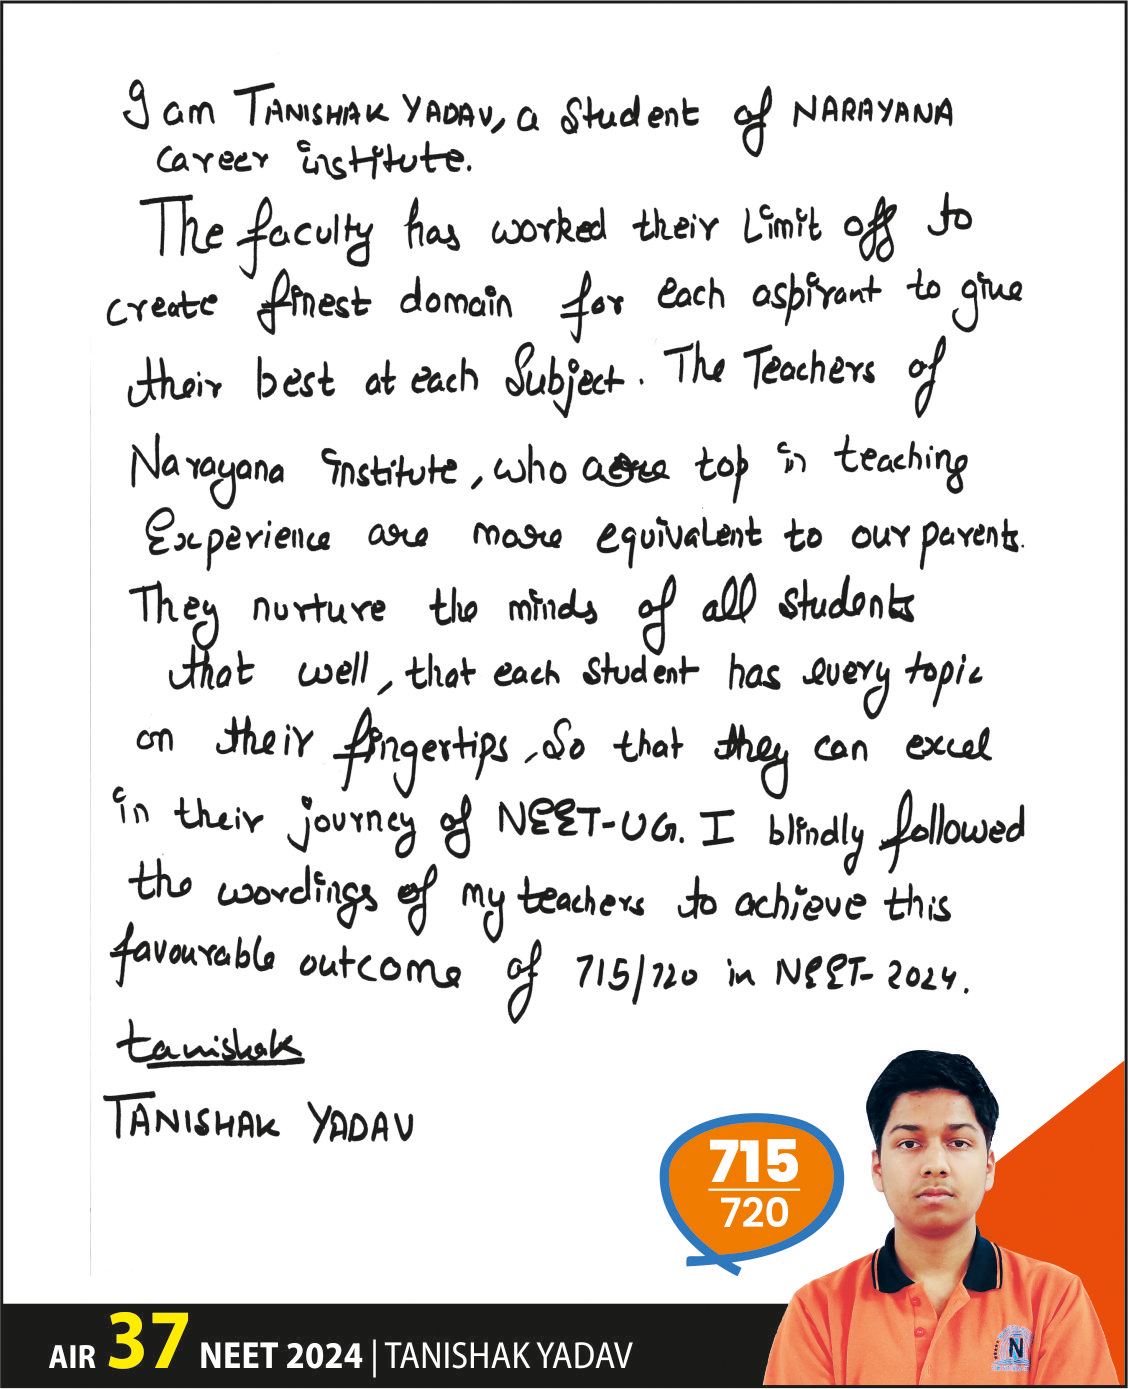 I am TANISHAK YADAV, a Student of NARAYANA
Career institute.
The faculty has worked their Limit off to
create finest domain for each aspirant to give
their best at each Subject. The Teachers of
Narayana institute, who are top in teaching
Experience are more equivalent to our parents.
They nurture the minds of all students
that well, that each student has every topic
on their fingertips, So that they can excel
in their journey of NEET-UG. I blindly followed
the wordings of my teachers to achieve this
favourable outcome of 715/720 in NEET-2024.
tanishak
TANISHAK YADAV
715
720
N
AIR 37 NEET 2024 | TANISHAK YADAV